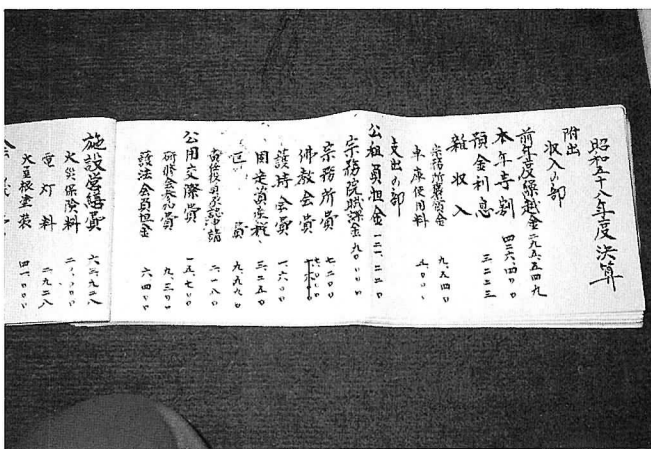 昭和五十八年度決算
附出
収入の部
前年度繰越金 二九五、五四九
本年寺割 四三六、四〇〇
預金利息 三二二三
雑収入
宗務所奨励金 九、五四〇
車庫使用料 五、〇〇〇
支出の部
公租負担金 一二一、二二〇
宗務院賦課金 九〇、〇〇〇
宗務所費 七、二〇〇
佛教会費
護持会費 一、六〇〇
固定資産税 三、二五〇
区費 九、九七〇
公用交際費 一五、七〇〇
研修会参加費 九、三〇〇
護法会負担金 六、四〇〇
施設営繕費 六三、九二八
火災保険料 二〇、〇〇〇
電灯料 二、九二八
大豆根塗装 四一、〇〇〇